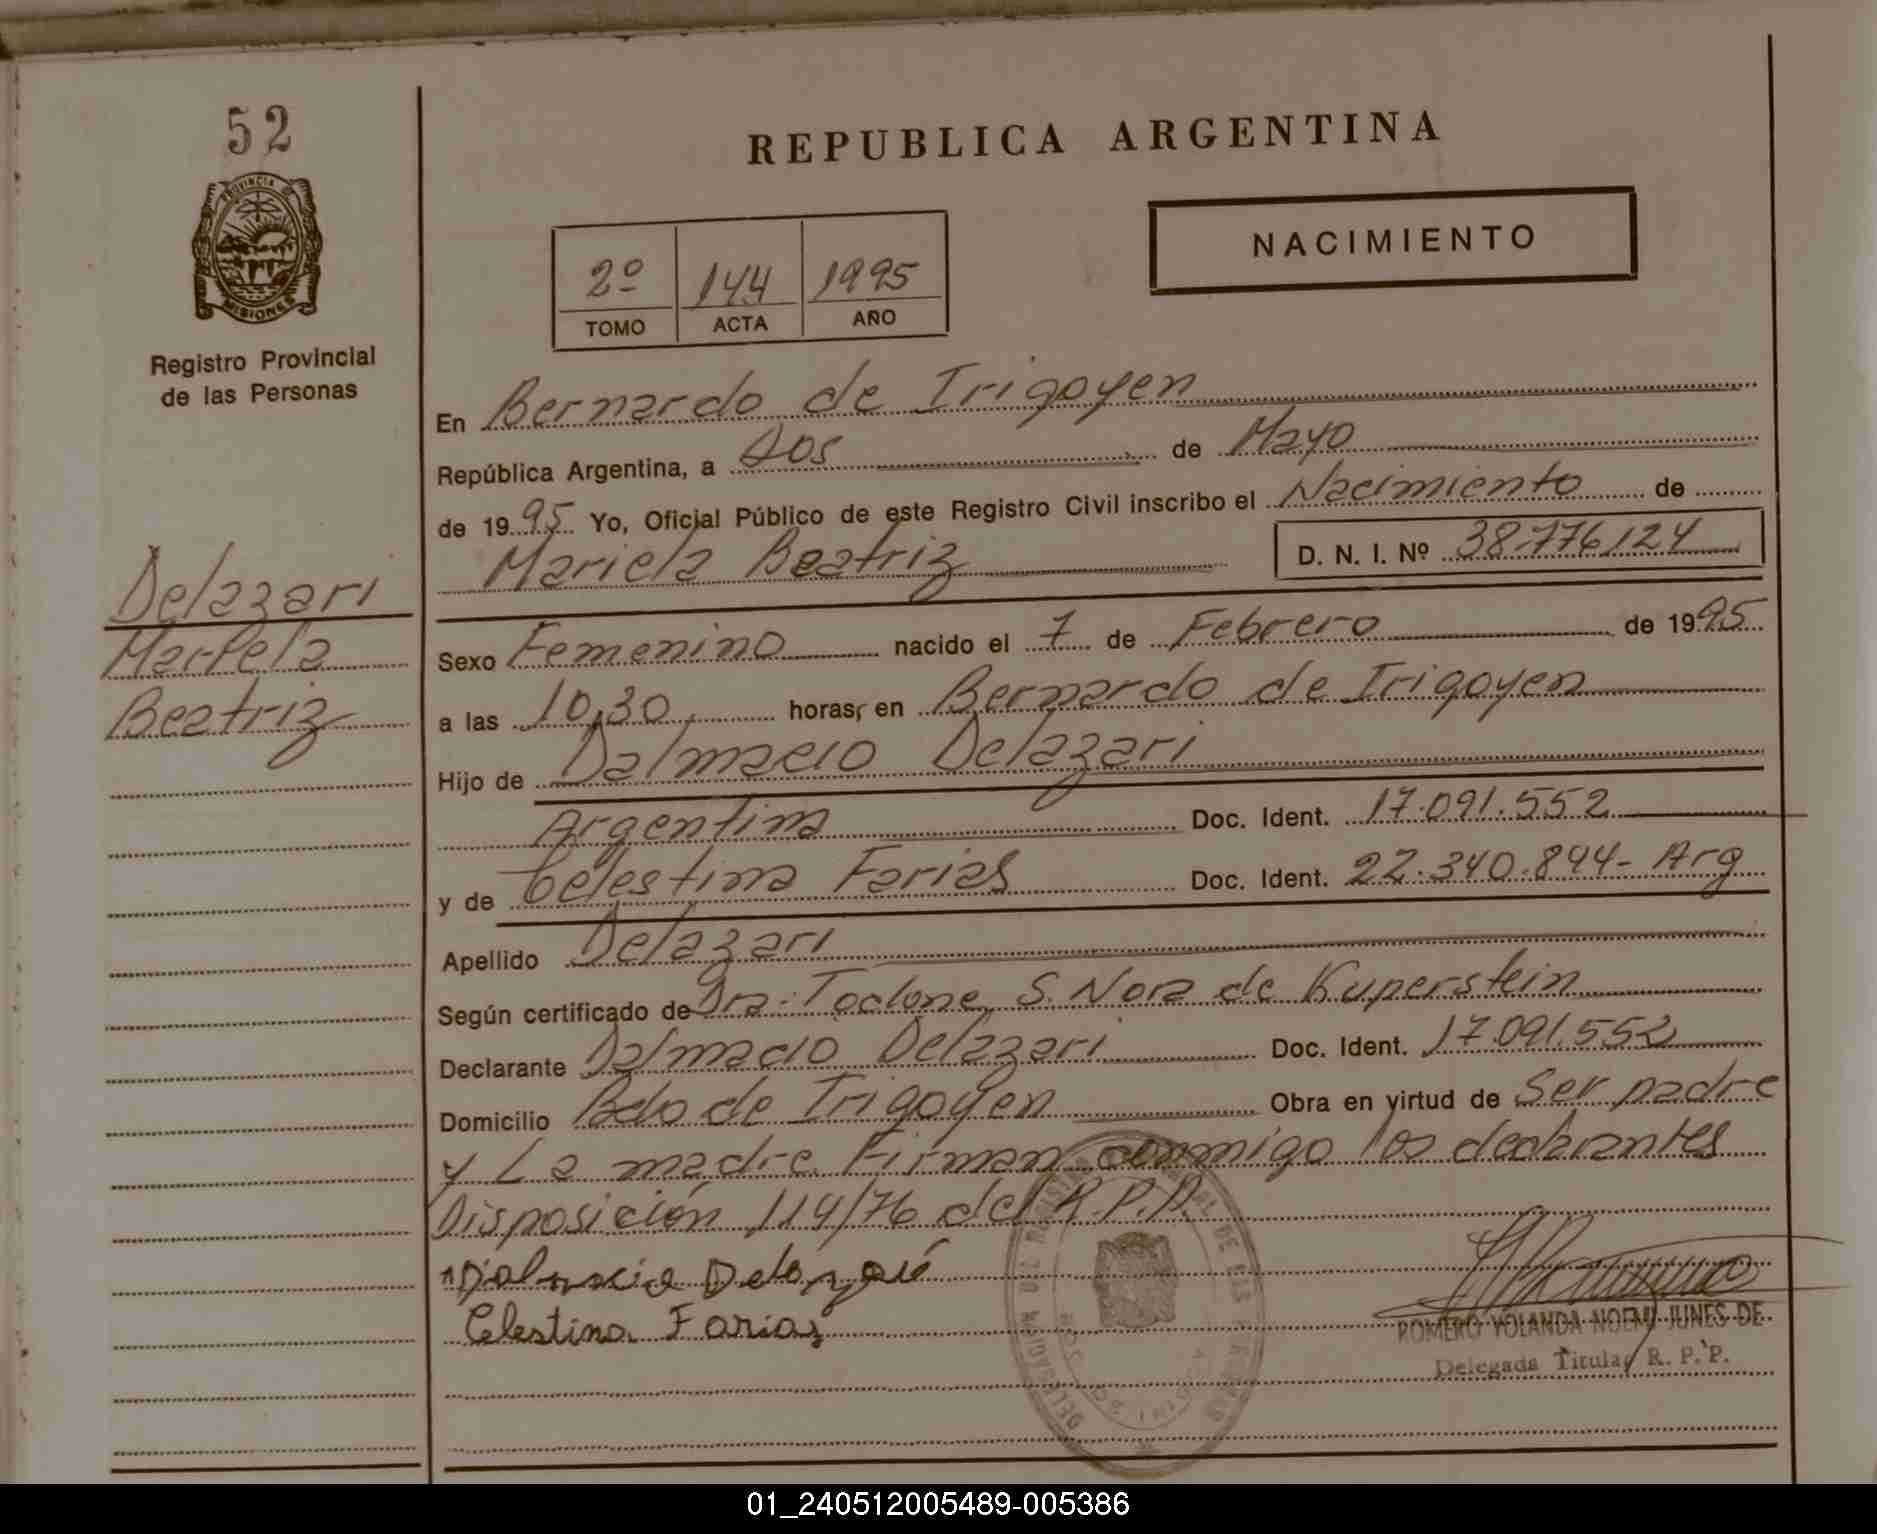 52
PROVINCIA DE
MISIONES
Registro Provincial
de las Personas
Delazari
Mariela
Beatriz
REPUBLICA ARGENTINA
NACIMIENTO
2º 144 1995
TOMO ACTA AÑO
En Bernardo de Irigoyen
República Argentina, a dos de Mayo
de 1995 Yo, Oficial Público de este Registro Civil inscribo el Nacimiento de
Mariela Beatriz D. N. I. Nº 38.776.124
Sexo Femenino nacido el 7 de Febrero de 1995
a las 10,30 horas, en Bernardo de Irigoyen
Hijo de Dalmacio Delazari
Argentina Doc. Ident. 17.091.552
y de Celestina Farias Doc. Ident. 22.340.894- Arg
Apellido Delazari
Según certificado de Dra. S. Nora de Kuperstein
Declarante Dalmacio Delazari Doc. Ident. 17.091.552
Domicilio Bdo de Irigoyen Obra en virtud de Ser padre
y La madre. Firman conmigo los declarantes
Disposición 114/76 del R.P.P.
Dalmacio Delazari
Celestina Farias
ROMERO YOLANDA NOEMI JUNES DE
Delegada Titular R. P. P.
01_240512005489-005386